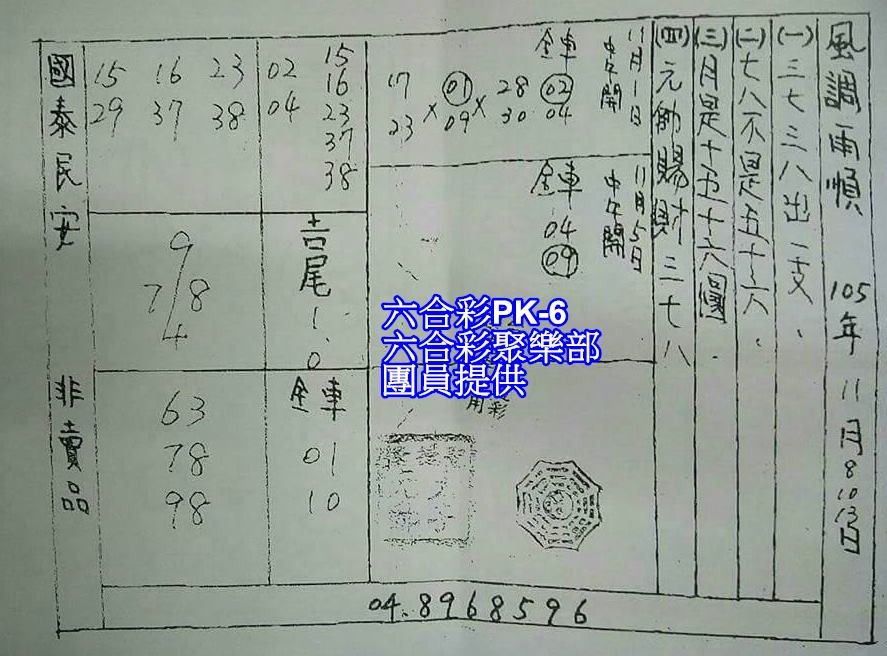 風調雨順 105年 11月8 10 13日
(一)三七三八出一支.
(二)七八不是五十六.
(三)月是十五十六圓.
(四)元帥賜財三七八
11月1日
中午開
全車
02
04
17 01 28
23 × 09 × 30
11月5日
中午開
全車
04
09
15
16
23
37
38
02
04
15 16 23
29 37 38
吉尾
1.0
9
7/8
4
全車
01
10
63
78
98
國泰民安 非賣品
六合彩PK-6
六合彩聚樂部
團員提供
用彩
04.8968596